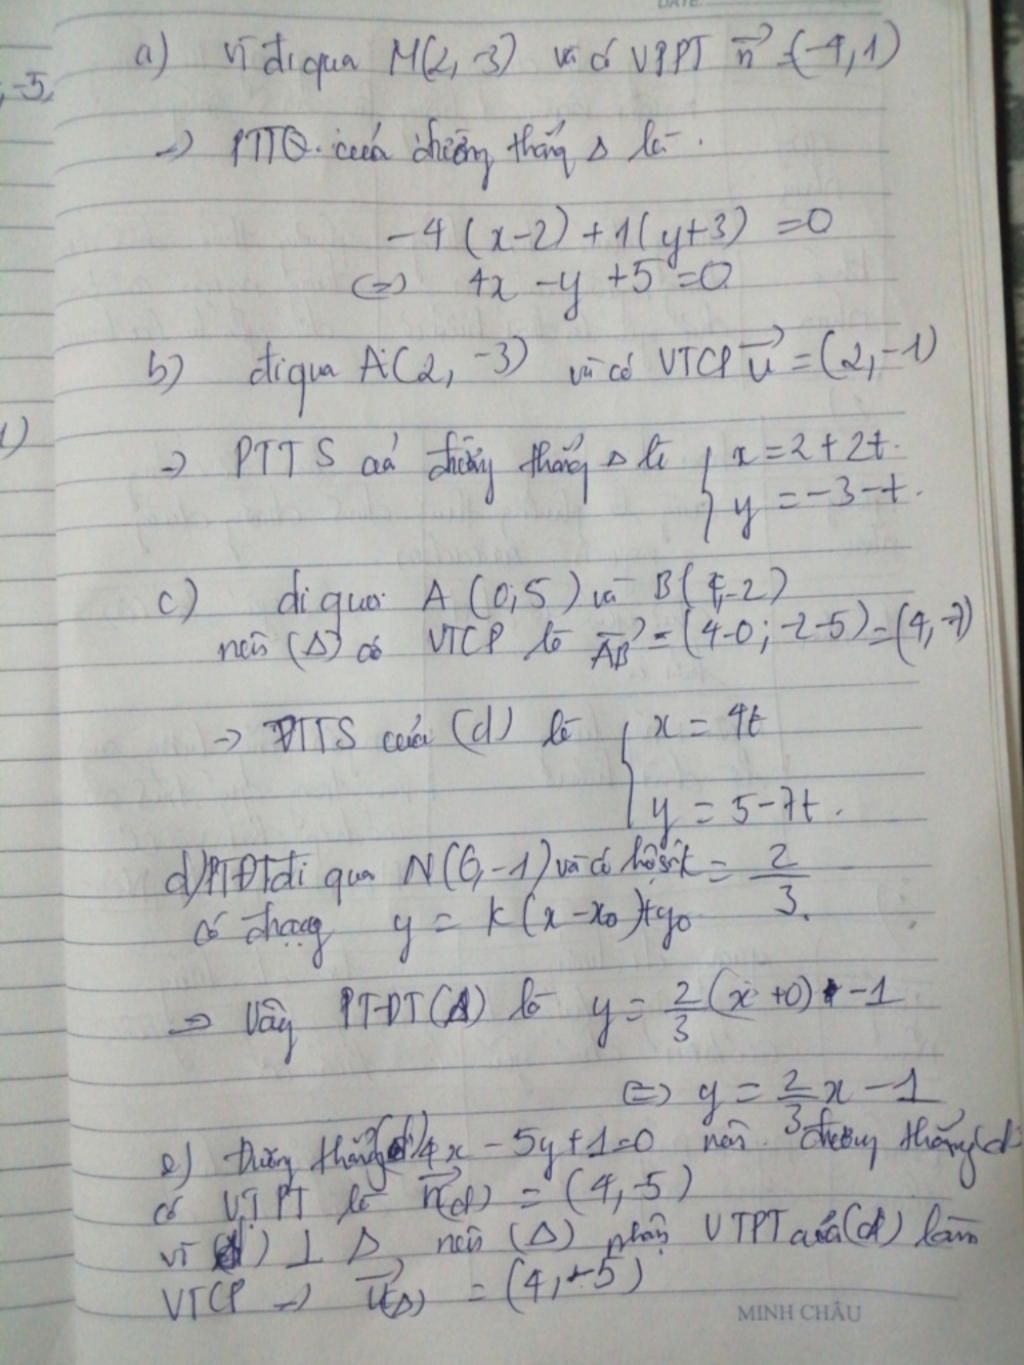 DATE
, -5,
a) Vì đi qua M(2, -3) và có VPPT n⃗ = (-4, 1)
→ PTTQ. của đường thẳng Δ là.
-4 (x-2) + 1(y+3) = 0
(=) 4x - y + 5 = 0
b) đi qua A(2, -3) và có VTCP u⃗ = (2, -1)
1)
→ PTTS của đường thẳng Δ là { x = 2 + 2t.
y = -3 - t.
c) đi qua A (0; 5) và B( , -2)
nên (Δ) có VTCP là AB⃗ = (4-0; -2-5) = (4, -7)
→ PTTS của (d) là { x = 4t
y = 5 - 7t.
d) PTĐT đi qua N(0, -1) và có hệ số k = 2/3.
có dạng y = k (x - x₀) + y₀
=> Vậy PTĐT(Δ) là y = 2/3 (x + 0) - 1
(=) y = 2/3 x - 1
e) Đường thẳng (d) 4x - 5y + 1 = 0 nên đường thẳng (d)
có VTPT là n⃗(d) = (4, -5)
vì (d) ⊥ Δ nên (Δ) nhận VTPT của (d) làm
VTCP → u⃗(Δ) = (4, -5)
MINH CHÂU